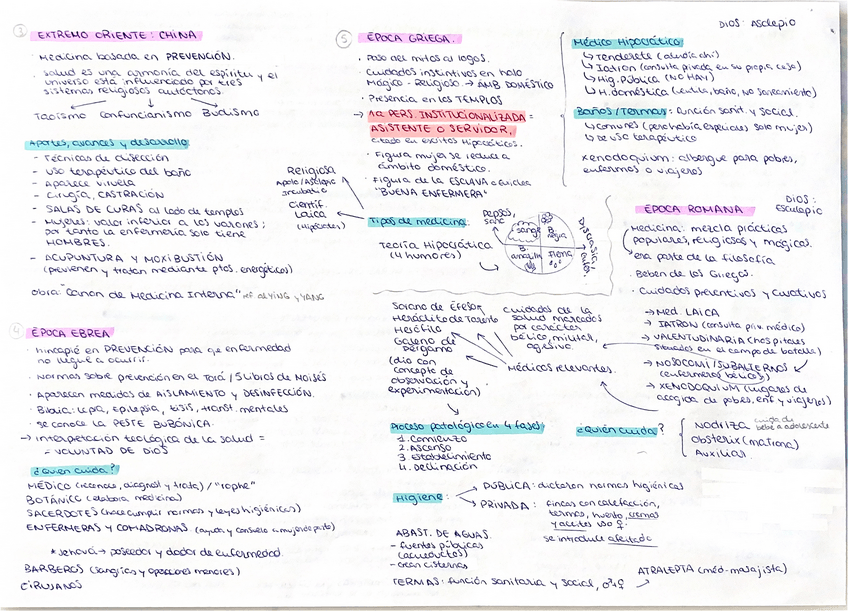 ③ EXTREMO ORIENTE: CHINA
- Medicina basada en PREVENCIÓN.
- Salud es una armonía del espíritu y el
universo está influenciado por tres
sistemas religiosos autóctonos.
Taoísmo Confucianismo Budismo
Aportes, avances y desarrollo:
- Técnicas de disección
- Uso terapéutico del baño
- Aparece viruela
- Cirugía, CASTRACIÓN
- SALAS DE CURAS al lado de templos
- Mujeres: valor inferior a los varones;
por tanto la enfermería solo tiene
HOMBRES.
- ACUPUNTURA Y MOXIBUSTIÓN
(previenen y tratan mediante ptos. energéticos)
Obra: "Canon de Medicina Interna" YING y YANG
④ ÉPOCA EBREA
- hincapié en PREVENCIÓN para que enfermedad
no llegue a ocurrir.
- Normas sobre prevención en el Torá / 5 libros de Moisés
- Aparecen medidas de AISLAMIENTO Y DESINFECCIÓN.
- Biblia: lepra, epilepsia, tisis, transt. mentales
- Se conoce la PESTE BUBÓNICA.
→ Interpretación teológica de la salud =
= VOLUNTAD DE DIOS
¿Quién cuida?
MÉDICO (reconoce, diagnost y trata) / "rophe"
BOTÁNICO (elabora medicina)
SACERDOTES (hace cumplir normas y leyes higiénicas)
ENFERMERAS Y COMADRONAS (ayuda y consuelo a mujer de parto)
* Jehová → poseedor y dador de enfermedad.
BARBEROS (sangrías y operaciones menores)
CIRUJANOS
⑤ ÉPOCA GRIEGA.
- Paso del mitos al logos.
- Cuidados instintivos en halo
Mágico - Religioso → ÁMB DOMÉSTICO
- Presencia en los TEMPLOS
→ 1a PERS. INSTITUCIONALIZADA =
ASISTENTE O SERVIDOR,
citado en escritos hipocráticos.
- Figura mujer se reduce a
ámbito doméstico.
- Figura de la ESCLAVA
"BUENA ENFERMERA"
Religiosa
Apolo/Asclepio
incubatio
Científ.
Laica
(Hipócrates)
Tipos de medicina:
Teoría Hipocrática
(4 humores)
sangre
B. negra
B. amarilla
flema
DIOS: Asclepio
Médico Hipocrático
↳ Tenderete
↳ Iatron (consulta privada en su propia casa)
↳ Hig. Pública (NO HAY)
↳ H. doméstica
Baños / Termas: función sanit. y social.
↳ comunes
↳ de uso terapéutico
xenodoquium: albergue para pobres,
enfermos o viajeros
Sorano de Éfeso
Heráclito de Tarento
Herófilo
Galeno de
Pérgamo
(dio con
concepto de
observación y
experimentación)
cuidados de la
salud marcados
por carácter
bélico, militar,
agresivo.
Médicos relevantes.
Proceso patológico en 4 fases
1. Comienzo
2. Ascenso
3. Establecimiento
4. Declinación
Higiene:
PÚBLICA: dictaron normas higiénicas
PRIVADA: fincas con calefacción,
termas, huerto, cremas
y aceites uso ♀.
se introduce afeitado
ABAST. DE AGUAS.
- fuentes públicas
(acueductos)
- crean cisternas
TERMAS: función sanitaria y social, ♂♀
ATRALEPTA (méd-masajista)
ÉPOCA ROMANA
DIOS:
Esculapio
Medicina: mezcla prácticas
populares, religiosas y mágicas.
era parte de la filosofía
- Beben de los Griegos.
- Cuidados preventivos y curativos
→ MED. LAICA
→ IATRON (consulta priv. médico)
→ VALENTUDINARIA (hospitales
situados en el campo de batalla)
→ NOSOCOMI / SUBALTERNOS
(enfermeros bélicos)
→ XENODOQUIUM (lugares de
acogida de pobres, enf y viajeros)
¿Quién cuida?
Nodriza cuida de bebé a adolescente
Obstetrix (matrona)
Auxiliar